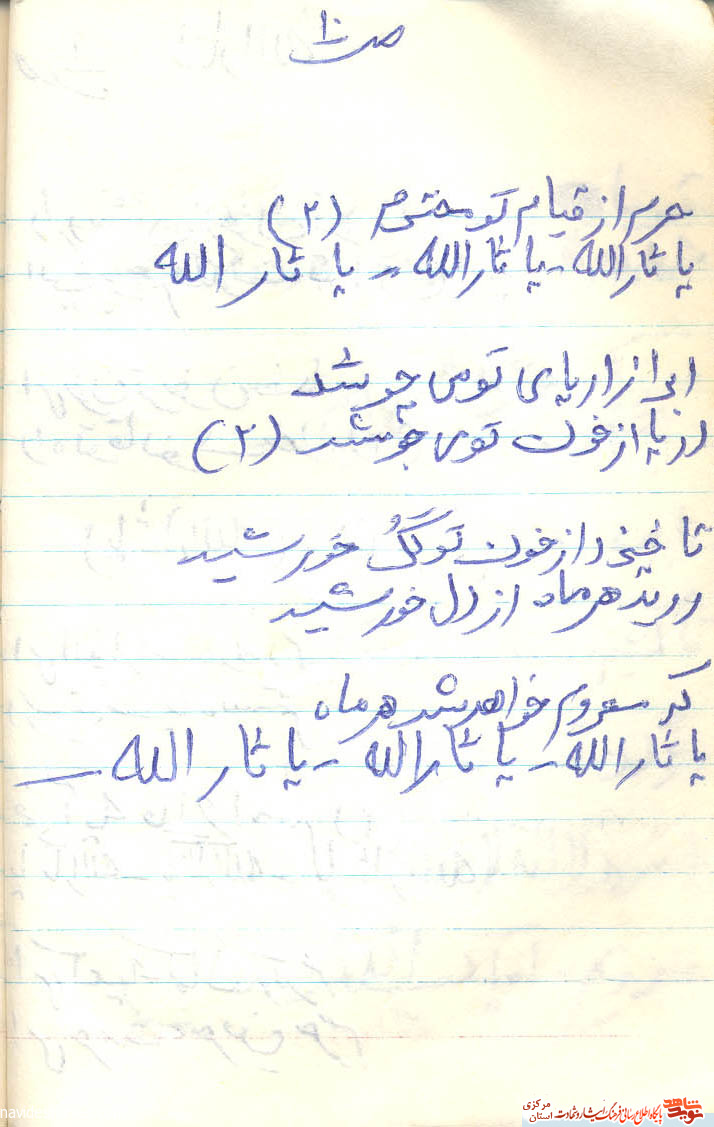 ص ۱۰
حرم از قیام تو محتشم (۲)
یا ثارالله - یا ثارالله - یا ثار الله
ابر از پای تو می جوشد
دریا از خون تو می جوشد (۲)
تا خیزد از خون تو گُل خورشید
روید هر ماه از دل خورشید
که معدوم خواهد شد هر ماه
یا ثارالله - یا ثارالله - یا ثار الله -
نوید شاهد پایگاه اطلاع رسانی فرهنگ ایثار و شهادت استان مرکزی
navid